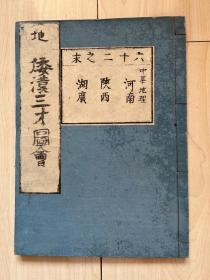 地
倭漢三才圖會
六十二之末
中華地理
河南
陝西
湖廣